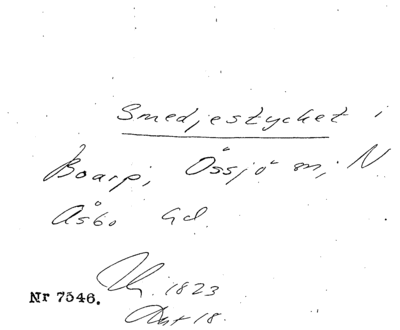 Smedjestycket i
Boarp, Össjö sn, N
Åsbo hd.
1823
Akt 18.
Nr 7546.